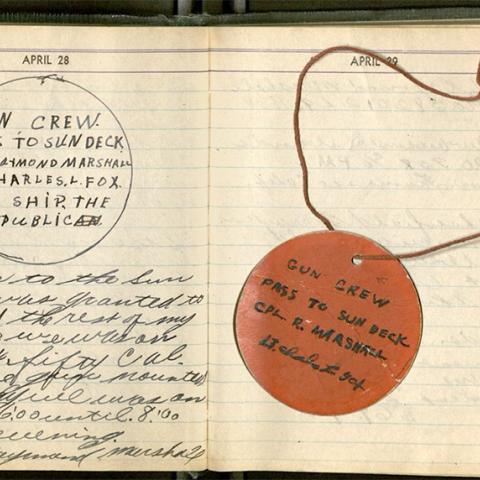 APRIL 28
N CREW.
S TO SUN DECK
AYMOND MARSHALL
HARLES. L. FOX.
SHIP. THE
PUBLICAN
to the Sun
was granted to
the rest of my
we was on
fifty Cal.
mounted
was on
6:00 until 8:00
evening.
aymond Marshall
APRIL 29
GUN CREW
PASS TO SUN DECK
CPL. R. MARSHALL